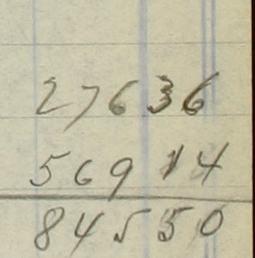 27636
56914
84550